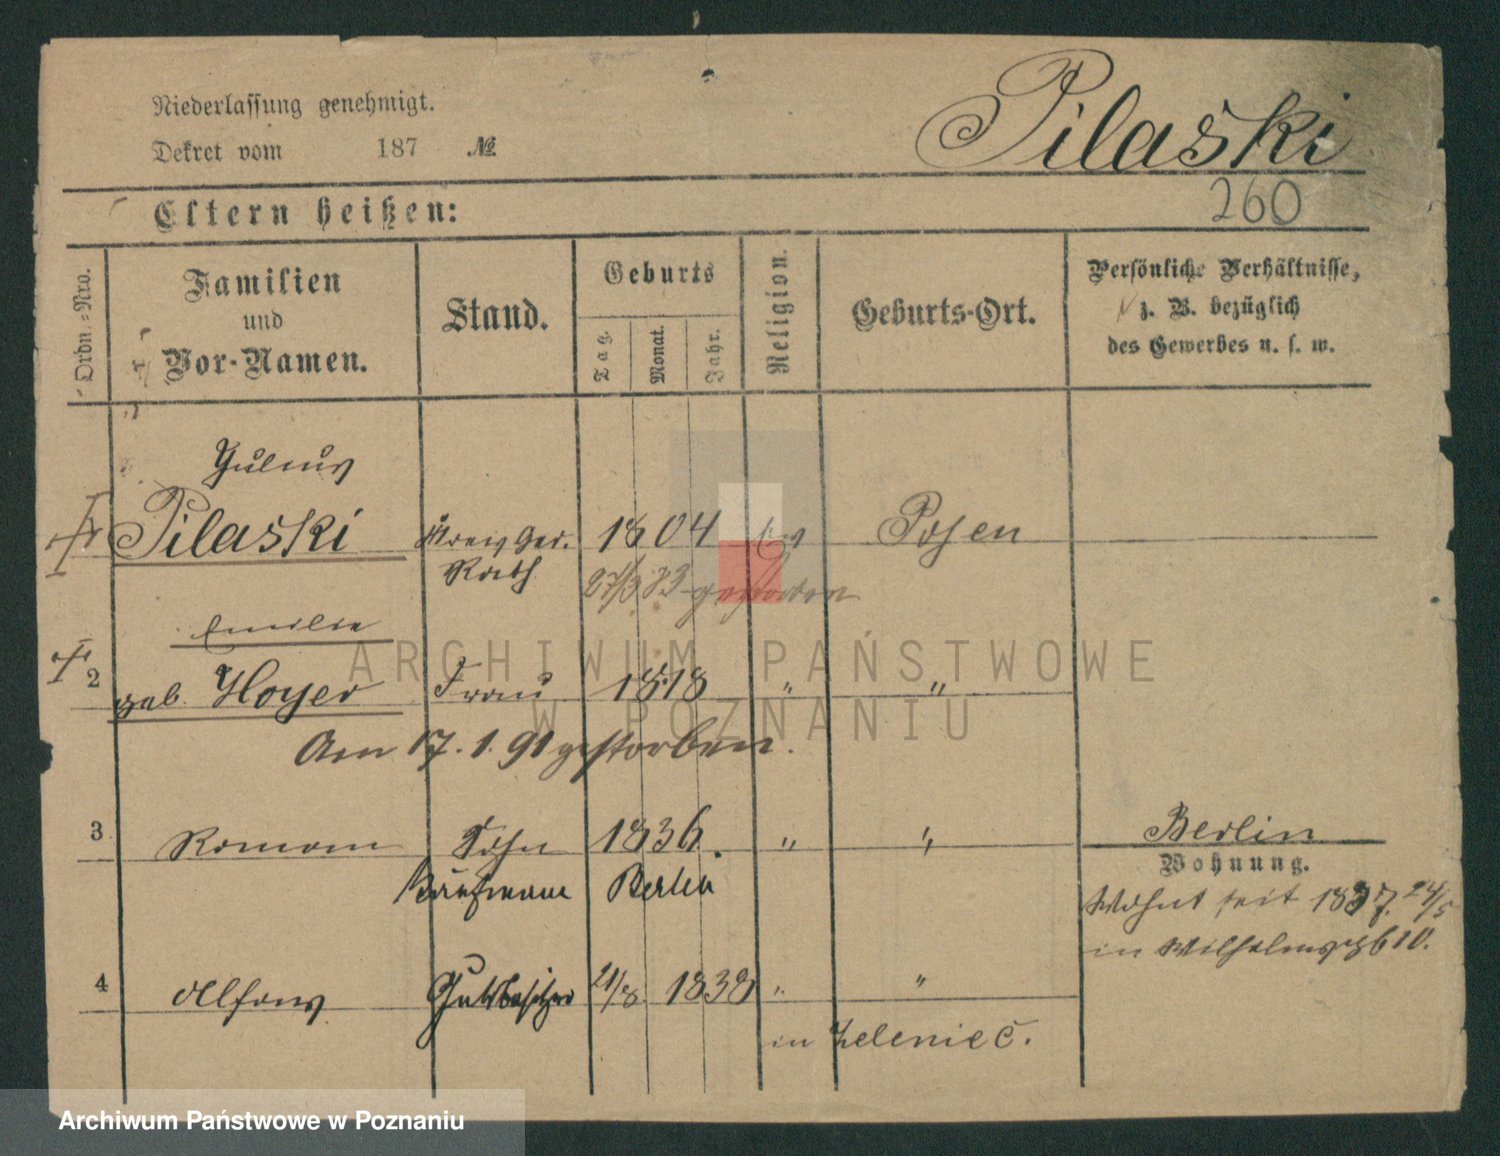 Niederlassung genehmigt.
Dekret vom 187 №
Pilaski
260
Eltern heißen:
Ordn.-Nro.
Familien
und
Vor-Namen.
Stand.
Geburts
Tag.
Monat.
Jahr.
Religion.
Geburts-Ort.
Persönliche Verhältnisse,
z. B. bezüglich
des Gewerbes u. s. w.
Julius
Pilaski Kreis Ger. 1804 Posen
Rath
27/3 83 gestorben
Emilie
2 geb. Hoyer Frau 1818 " "
Am 17. 1. 91 gestorben.
3 Roman Sohn 1836. " " Berlin
Kaufmann Berlin
Wohnung.
Wohnt seit 24/5
in
4 Alfons Gutsbesitzer 21/8 1838 " "
in Zeleniec.
ARCHIWUM PAŃSTWOWE
W POZNANIU
Archiwum Państwowe w Poznaniu